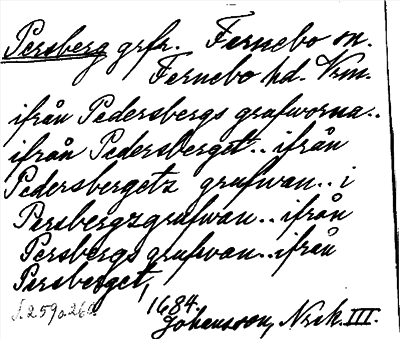 Persberg grfr. Fernebo sn.
Fernebo hd. Vrm.
ifrån Pedersbergs grufworna..
ifrån Pedersberget.. ifrån
Pedersbergetz grufwan.. i
Persbergzgrufwan.. ifrån
Persbergs grufvan.. ifrån
Persberget,
s. 259 o. 260 1684.
Johansson, Nrsk. III.